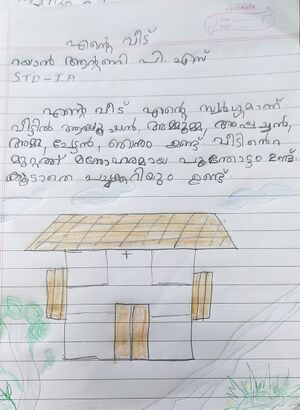 എന്റെ വീട്
റയാൻ ആന്റണി പി. എസ്
STD - I A
എന്റെ വീട് എന്റെ സ്വർഗ്ഗമാണ്
വീട്ടിൽ അമ്മൂമ്മ, അപ്പച്ചൻ,
അമ്മ, ചേട്ടൻ, ഞാനും ഉണ്ട് വീടിൻറെ
മുറ്റത്ത് മനോഹരമായ പൂന്തോട്ടം ഉണ്ട്
കൂടാതെ പച്ചക്കറിയും ഉണ്ട്
classmate
Date
Page